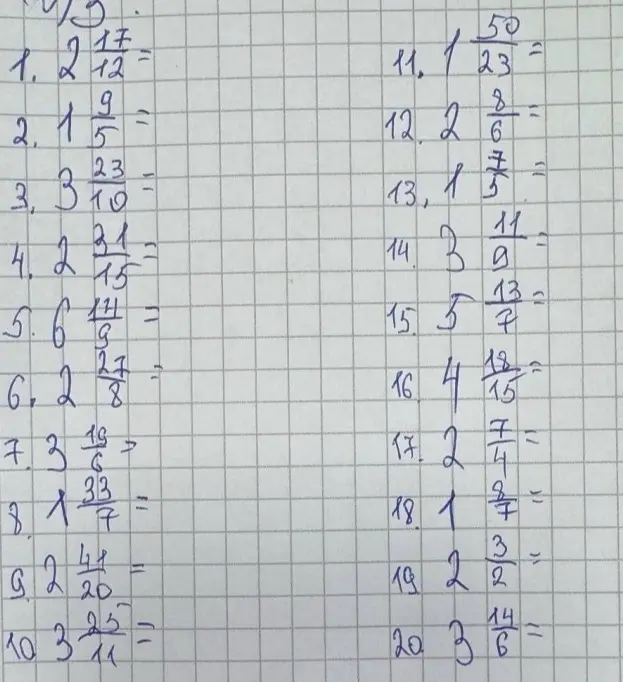 1. 2 17/12 =
2. 1 9/5 =
3. 3 23/10 =
4. 2 31/15 =
5. 6 14/9 =
6. 2 27/8 =
7. 3 19/6 =
8. 1 33/7 =
9. 2 41/20 =
10. 3 25/11 =
11. 1 50/23 =
12. 2 8/6 =
13. 1 7/5 =
14. 3 11/9 =
15. 5 13/7 =
16. 4 18/15 =
17. 2 7/4 =
18. 1 8/7 =
19. 2 3/2 =
20. 3 14/6 =